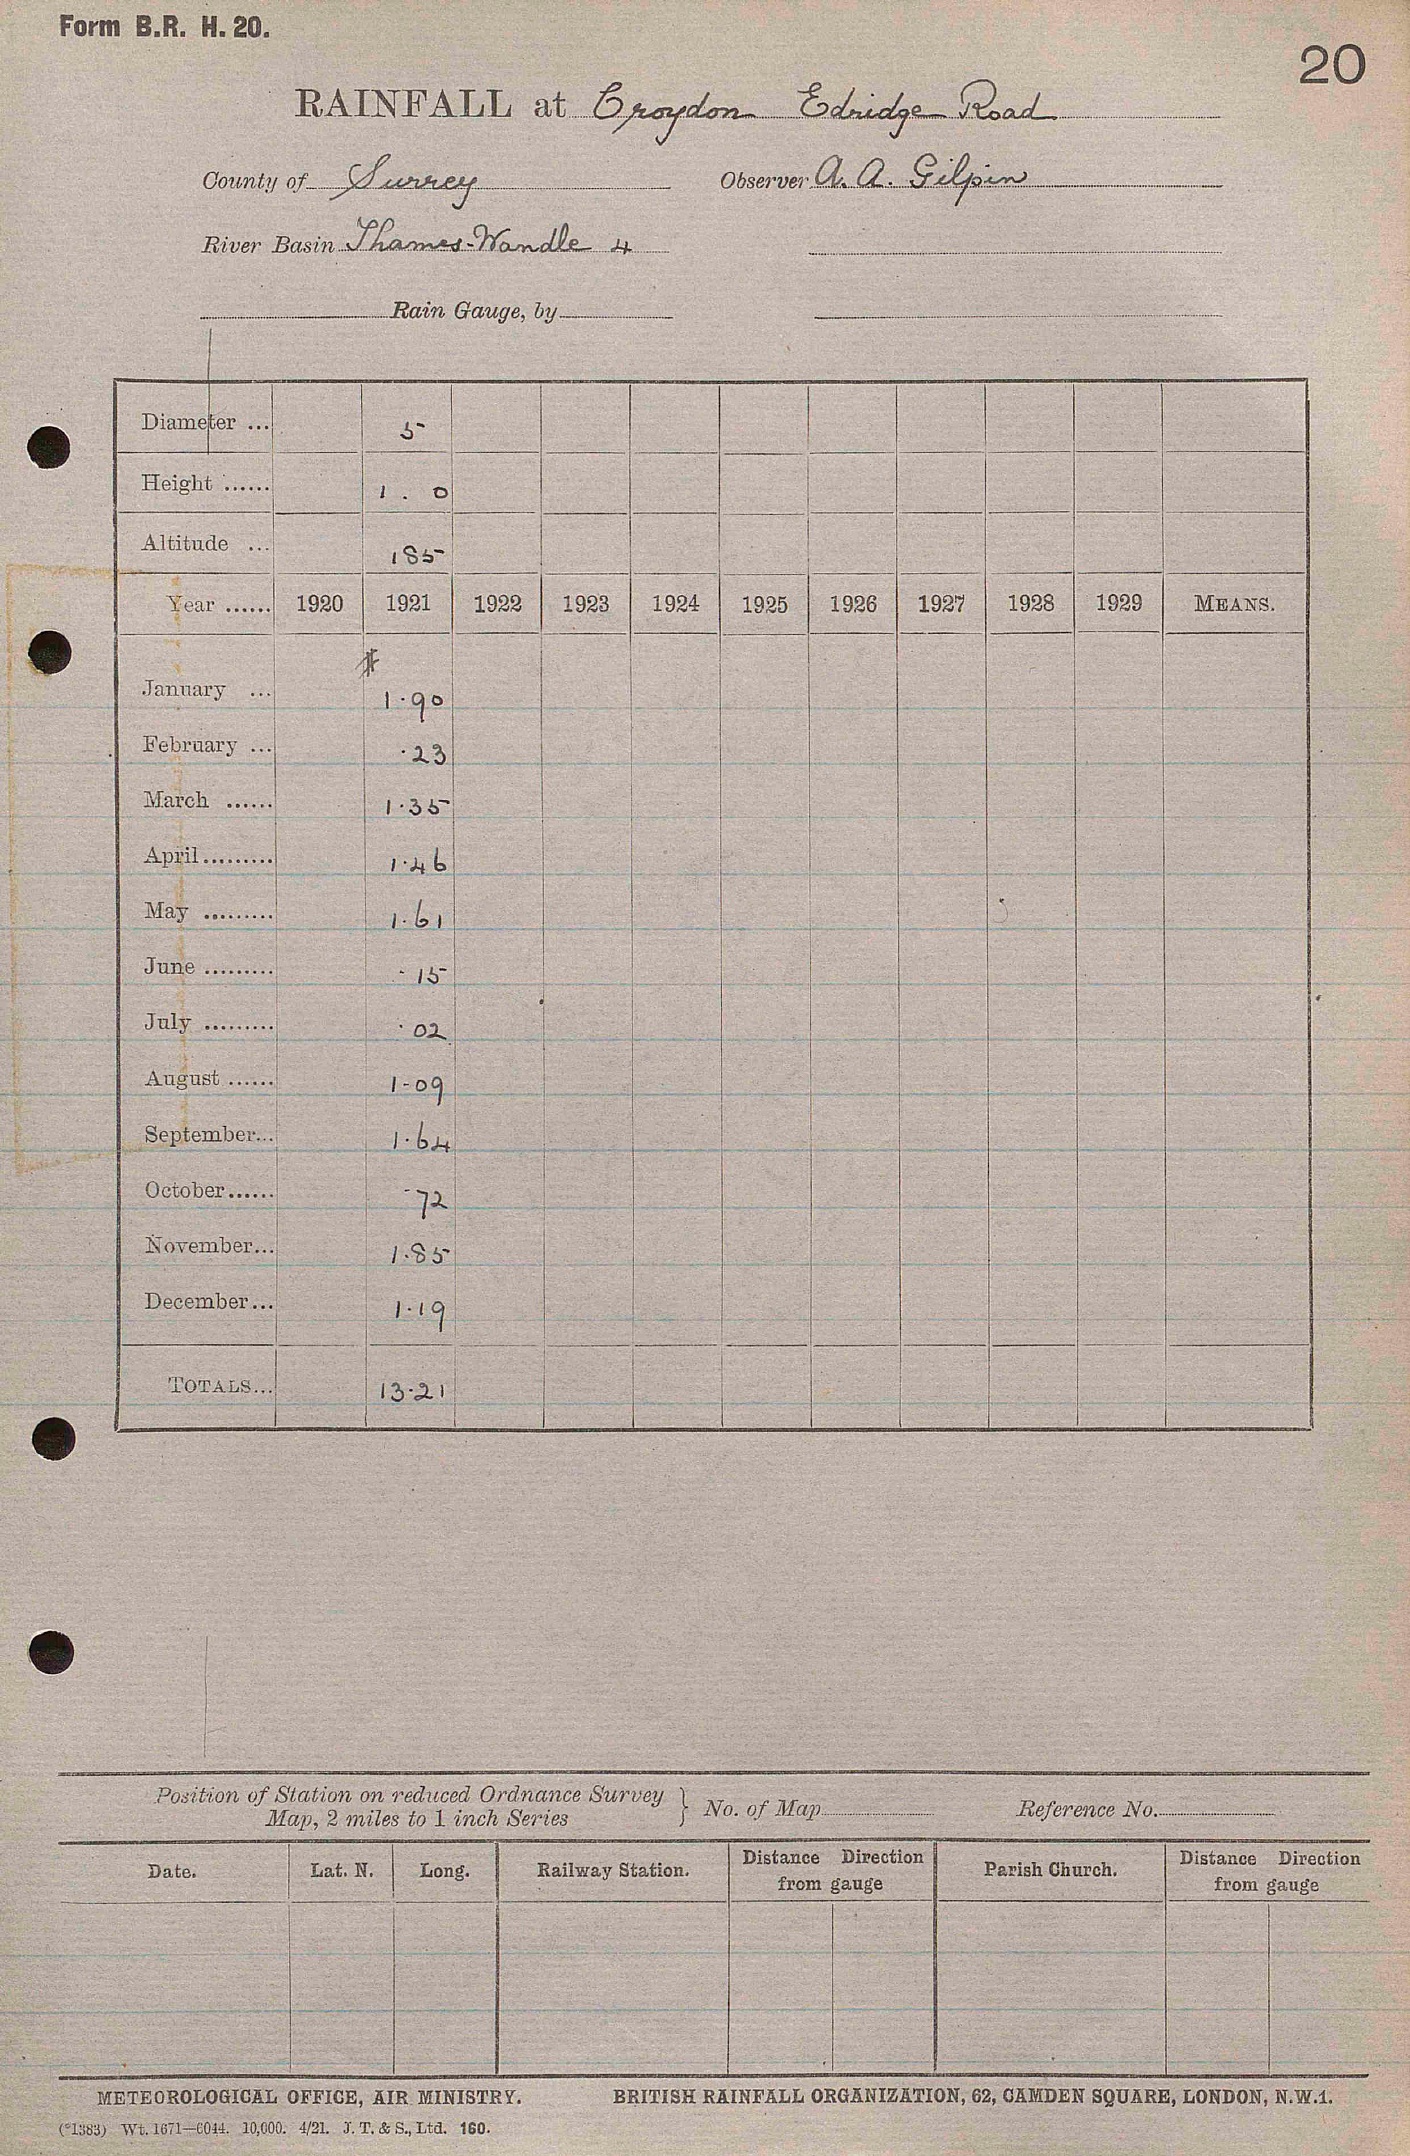 Form B.R. H. 20.
20
RAINFALL at Croydon Edridge Road
County of Surrey Observer A. A. Gilpin
River Basin Thames-Wandle 4
Rain Gauge, by
Diameter ... 5
Height ...... 1 . 0
Altitude ... 185
Year ...... 1920 1921 1922 1923 1924 1925 1926 1927 1928 1929 MEANS.
January ... 1.90
February ... .23
March ...... 1.35
April ......... 1.46
May ......... 1.61
June ......... .15
July ......... .02
August ...... 1.09
September... 1.64
October...... .72
November... 1.85
December... 1.19
TOTALS... 13.21
Position of Station on reduced Ordnance Survey
Map, 2 miles to 1 inch Series } No. of Map Reference No.
Date. Lat. N. Long. Railway Station. Distance Direction from gauge Parish Church. Distance Direction from gauge
METEOROLOGICAL OFFICE, AIR MINISTRY. BRITISH RAINFALL ORGANIZATION, 62, CAMDEN SQUARE, LONDON, N.W.1.
(*1383) Wt. 1671—6044. 10,000. 4/21. J. T. & S., Ltd. 160.